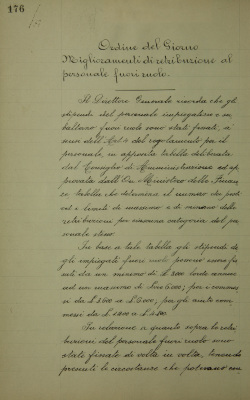 176
Ordine del Giorno
Miglioramenti di retribuzione al
personale fuori ruolo.
Il Direttore Generale ricorda che gli
stipendi del personale impiegatizio e su-
balterno fuori ruolo sono stati fissati, a
sensi dell'Art. del regolamento per il
personale, in apposita tabella deliberata
dal Consiglio di Amministrazione ed ap-
provata dalle Ministero delle
tabella che determina il numero dei posti
ed i limiti di massimo e di minimo delle
retribuzioni per ciascuna categoria del per-
sonale stesso.
In base a tale tabella gli stipendi de-
gli impiegati fuori ruolo possono essere fis-
sati da un minimo di L. lorde annue
ad un massimo di lire 6000; per i commes-
si da L. a L. ; per gli
da L. a L.
In relazione a quanto sopra le retri-
buzioni del personale fuori ruolo sono
state fissate di volta in volta, tenendo
presenti le circostanze che potevano